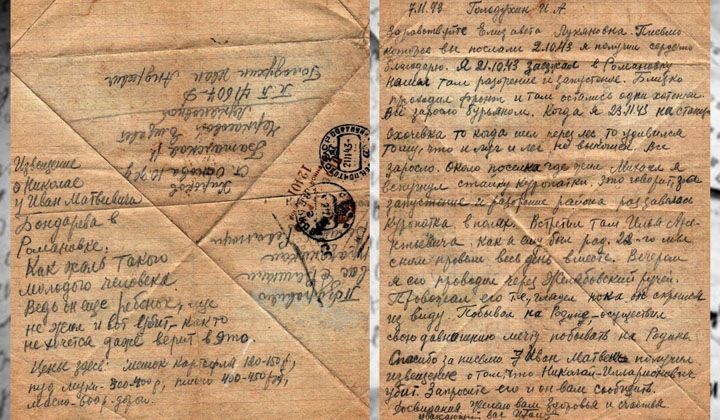 Извещение
о Николае
у Иван Матвивича
Бондарева в
Романовке.
Как жаль такого
молодого человека.
Ведь он еще ребенок, еще
не жил и вот убит - как то
не хочется даже верит в это.
Цены здесь: мешок картофля 120-150 р,
пуд муки - 300-400 р, мясо 400-450
масло - 600 р.
Голодухин Иван Андреевич
П П 41604-Д
Елизавета
Лукяновной
Харьков
Поздравляю
Вас с Великим
Праздником
Революции
7.11.43 Голодухин И.А
Здравствуйте Елизавета Лукяновна. Писмо
которое вы послали 2.10.43 я получил сердечно
благодарю. Я 21.10.43 заезжал в Романовку
нашел там разорение и запустение. Близко
проходил фронт и там остались одни хатенки
Все заросло бурьяном. Когда я 23.11.43 на станц
охочевка то когда шел через лес то удивился
тому, что и луг и лес не выкошен. Все
заросло. Около поселка где жил Михаил я
вспугнул стайку куропатки. Это говорит за
запустение и разорение района раздавалась
куропатка в полях. Встретил там Илья Арсе-
нтьевича. как я ему был рад. 22-го мы
с ним провели весь день вместе. Вечером
я его проводил через Желабовский ручей.
Провожал его т.е. глядел пока он скрылся
из виду. Побывал на Родине - осуществил
свою давнюю мечту побывать на Родине.
Спасибо за письмо. Иван Матвеич получил
извещение о том, что Николай Илларионович
убит. Запросите его и он вам сообщит.
Досвидания Желаю вам Здоровья и счастья